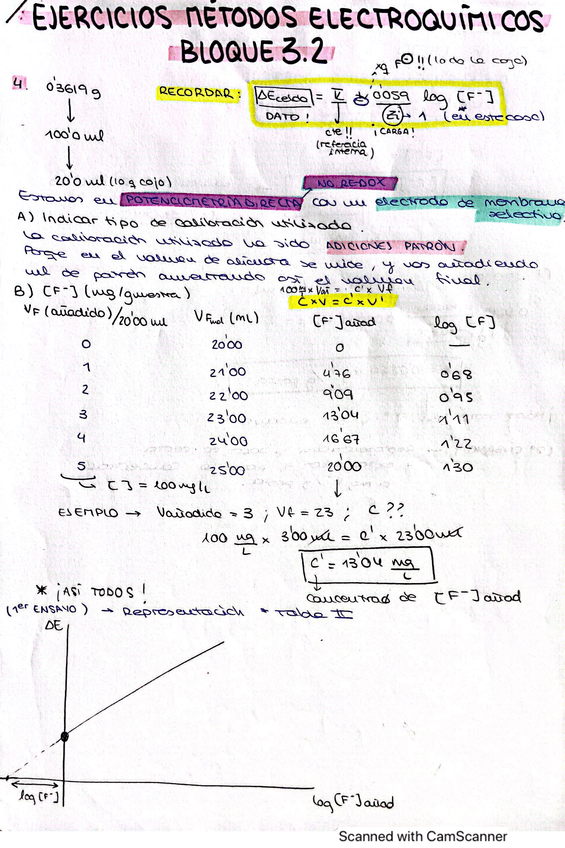 EJERCICIOS MÉTODOS ELECTROQUÍMICOS
BLOQUE 3.2
xq F⊖ !! (lo do la cojo)
4. 0'3619 g
RECORDAR: ΔEcelda = K ⊕ 0'059 log [F⁻]
DATO! Zi → 1 (en este caso)
100'0 ml
cte!! ¡CARGA!
(referencia interna)
20'0 ml (10 g cojo)
NO REDOX
Estamos en POTENCIOMETRÍA DIRECTA con un electrodo de membrana selectivo.
A) Indicar tipo de calibración utilizado.
La calibración utilizada ha sido ADICIONES PATRÓN.
Porqe en el volumen de alícuota se mide, y vas añadiendo
ml de patrón aumentando así el volumen final.
B) [F⁻] (mg/g muestra)
C×V = C'×V'
VF (añadido)/20'00 ml VFinal (mL) [F⁻] añad log [F]
0 20'00 0 —
1 21'00 4'76 0'68
2 22'00 9'09 0'95
3 23'00 13'04 1'11
4 24'00 16'67 1'22
5 25'00 20'00 1'30
[ ] = 100 mg/L
EJEMPLO → Vañadido = 3 ; Vf = 23 ; C ??
100 mg/L × 3'00 ml = C' × 23'00 ml
C' = 13'04 mg/L
* ¡ASÍ TODOS!
concentrac de [F⁻] añad
(1er ENSAYO) → Representación * Tabla II
ΔE
log [F⁻]
log [F⁻] añad
Scanned with CamScanner